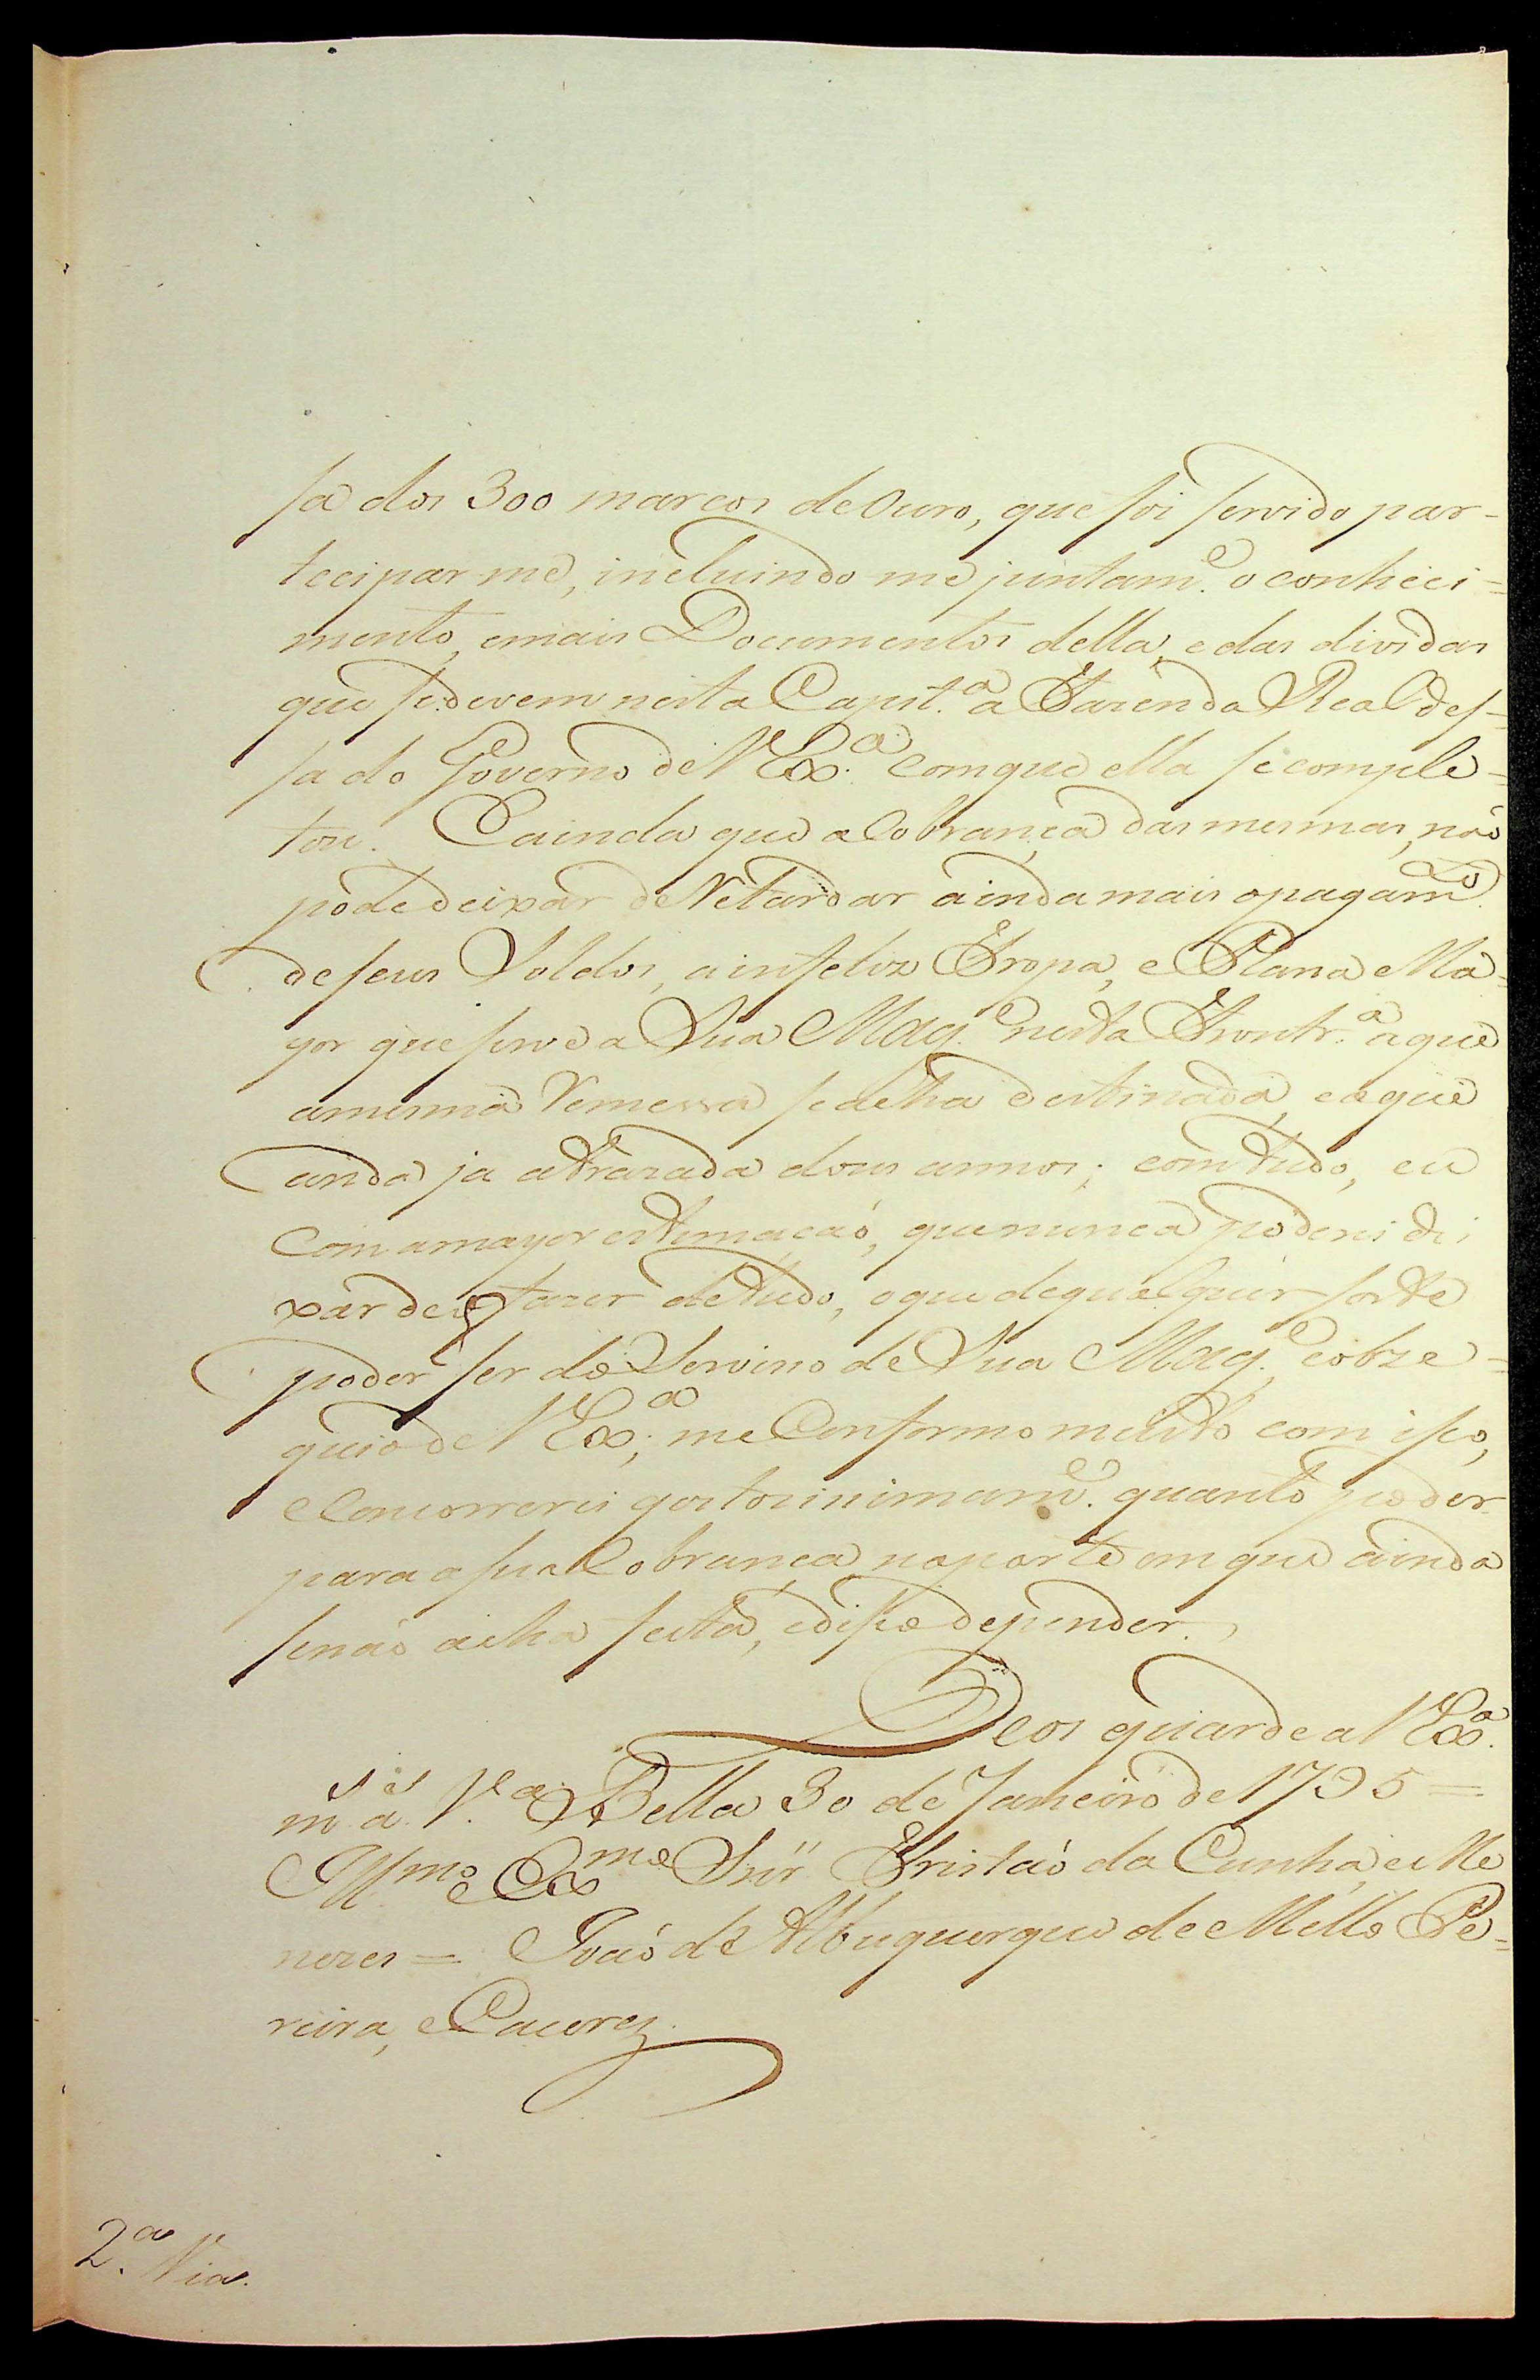 sa dos 300 marcos de Ouro, que foi servido par-
tecipar me, incluindo me juntam.e o conheci=
mento, emais Documentos della, e das dividas
que se devem nesta Capit.a a Fazenda Real des-
sa do Governo de V Ex.a com que ella se comple=
tou. E ainda que a Cobrança das mesmas, não
pode deixar de Retardar ainda mais o pagam.to
de seus Soldos, a infeliz Tropa, e Plana Ma=
yor que serve a Sua Mag.e nesta Frontr.a a que
a mesma Remessa se acha destinada, e a que
anda ja atrazada dous annos; com tudo, eu
Com a mayor estimação, que nunca poderei dei
xar de fazer de tudo, o que de qualquer sorte
poder ser do Serviço de Sua Mag.e, e obze=
quio de V Ex.a; me Conformo muito com isso,
e Concorrerei gostosissimam.e quanto poder
para a sua Cobrança, na parte em que ainda
se não acha feita, e disso depender.
Deos guarde a V Ex.a
m.s a.s V.a Bella 30 de Janeiro de 1795=
Ill.mo e Ex.mo Snr. Tristão da Cunha, e Me
nezes = João d'Albuquerque de Mello Pe=
reira, e Caceres.
2.a Via.